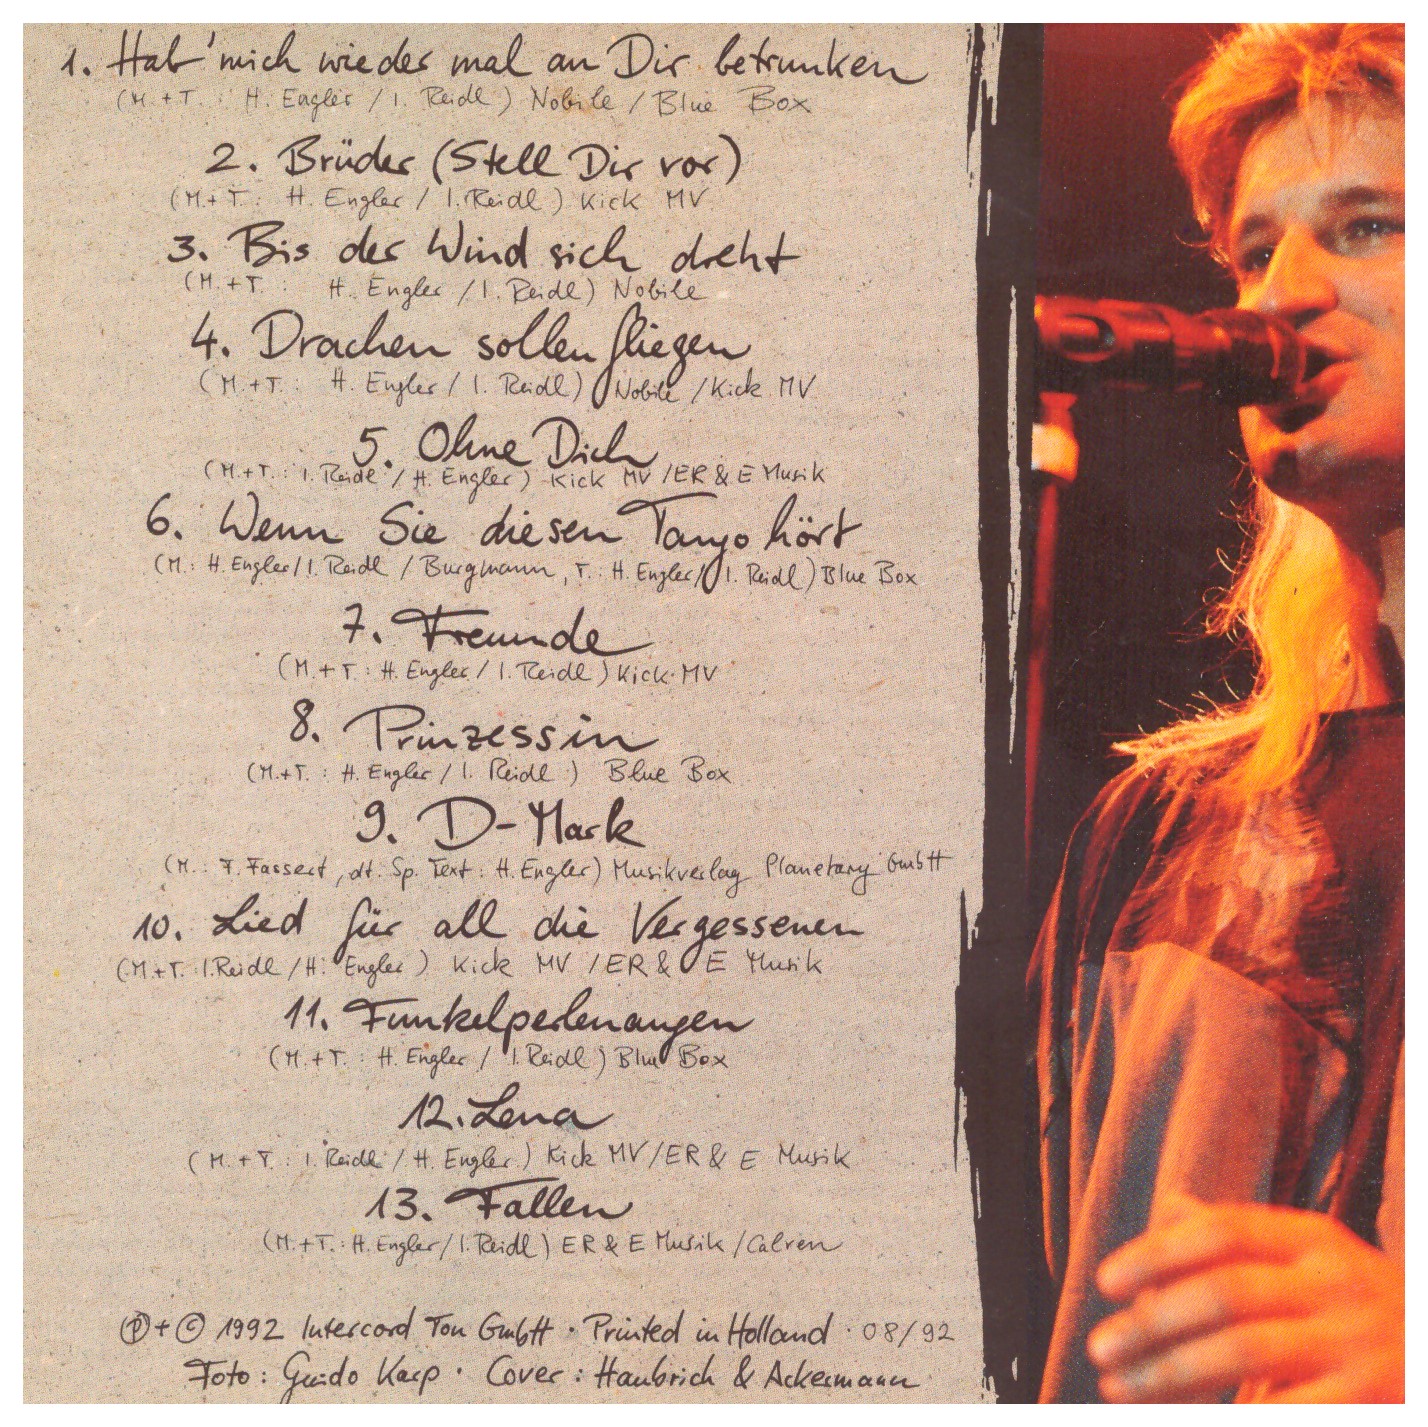 1. Hab' mich wieder mal an Dir betrunken
(M.+T. : H. Engler / I. Reidl) Nobile / Blue Box
2. Brüder (Stell Dir vor)
(M.+T. : H. Engler / I. Reidl) Kick MV
3. Bis der Wind sich dreht
(M.+T. : H. Engler / I. Reidl) Nobile
4. Drachen sollen fliegen
(M.+T. : H. Engler / I. Reidl) Nobile / Kick MV
5. Ohne Dich
(M.+T. : I. Reidl / H. Engler) Kick MV / ER & E Musik
6. Wenn Sie diesen Tango hört
(M.: H. Engler / I. Reidl / Burgmann, T.: H. Engler / I. Reidl) Blue Box
7. Freunde
(M.+T. : H. Engler / I. Reidl) Kick MV
8. Prinzessin
(M.+T. : H. Engler / I. Reidl) Blue Box
9. D-Mark
(M.: F. Fassert, dt. Sp. Text: H. Engler) Musikverlag Planetary GmbH
10. Lied für all die Vergessenen
(M.+T. : I. Reidl / H. Engler) Kick MV / ER & E Musik
11. Funkelperlenaugen
(M.+T. : H. Engler / I. Reidl) Blue Box
12. Lena
(M.+T. : I. Reidl / H. Engler) Kick MV / ER & E Musik
13. Fallen
(M.+T.: H. Engler / I. Reidl) ER & E Musik / Calren
Ⓟ+© 1992 Intercord Ton GmbH · Printed in Holland · 08/92
Foto: Guido Karp · Cover: Haubrich & Ackermann